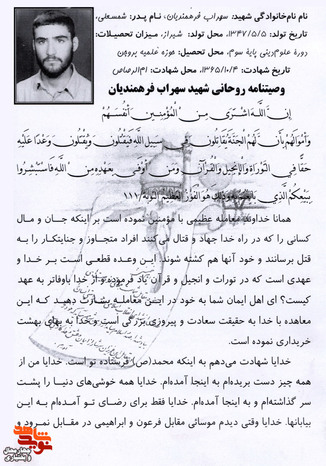 نام نام‌خانوادگی شهید: سهراب فرهمندیان، نام پدر: شمسعلی،
تاریخ تولد: ۱۳۴۷/۵/۵، محل تولد: شیراز، میزان تحصیلات:
دورهٔ علوم‌دینی پایهٔ سوم، محل تحصیل: حوزه علمیه بروجن
تاریخ شهادت: ۱۳۶۵/۱۰/۴، محل شهادت: ام‌الرصاص
وصیتنامه روحانی شهید سهراب فرهمندیان
إِنَّ اللَّهَ اشْتَرَى مِنَ الْمُؤْمِنِينَ أَنْفُسَهُمْ
وَأَمْوَالَهُمْ بِأَنَّ لَهُمُ الْجَنَّةَ يُقَاتِلُونَ فِي سَبِيلِ اللَّهِ فَيَقْتُلُونَ وَيُقْتَلُونَ وَعْدًا عَلَيْهِ
حَقًّا فِي التَّوْرَاةِ وَالْإِنْجِيلِ وَالْقُرْآنِ وَمَنْ أَوْفَى بِعَهْدِهِ مِنَ اللَّهِ فَاسْتَبْشِرُوا
بِبَيْعِكُمُ الَّذِي بَايَعْتُمْ بِهِ وَذَلِكَ هُوَ الْفَوْزُ الْعَظِيمُ التوبه/۱۱۱
همانا خداوند معامله عظیمی با مؤمنین نموده است بر اینکه جان و مال
کسانی را که در راه خدا جهاد و قتال می کنند افراد متجاوز و جنایتکار را به
قتل برسانند و خود آنها هم کشته شوند. این وعده قطعی است بر خدا و
عهدی است که در تورات و انجیل و قرآن یاد فرموده و از خدا باوفاتر به عهد
کیست؟ ای اهل ایمان شما به خود در این معامله بشارت دهید که این
معاهده با خدا به حقیقت سعادت و پیروزی بزرگی است و خدا به بهای بهشت
خریداری نموده است.
خدایا شهادت می‌دهم به اینکه محمد(ص) فرستاده تو است. خدایا من از
همه چیز دست بریده‌ام به اینجا آمده‌ام. خدایا همه خوشی‌های دنیا را پشت
سر گذاشته‌ام و به اینجا آمده‌ام. خدایا فقط برای رضای تو آمده‌ام به این
بیابانها. خدایا وقتی دیدم موسائی مقابل فرعون و ابراهیمی در مقابل نمرود و